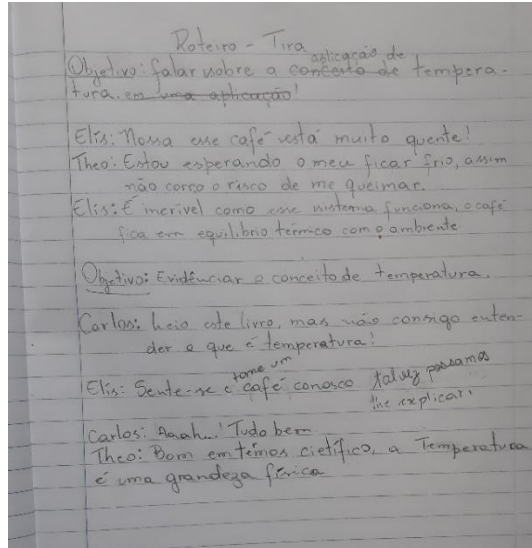 Roteiro - Tira
Objetivo: falar sobre a conceito de aplicação de tempera-
tura em uma aplicação!
Elis: Nossa esse café está muito quente!
Theo: Estou esperando o meu ficar frio, assim
não corro o risco de me queimar.
Elis: É incrível como esse sistema funciona, o café
fica em equilibrio térmico com o ambiente
Objetivo: Evidênciar o conceito de temperatura.
Carlos: Leio este livro, mas não consigo enten-
der o que é temperatura!
Elis: Sente-se e tome um café conosco talvez possamos
lhe explicar.
Carlos: Aaah! Tudo bem
Theo: Bom em têmos cietífico, a Temperatura
é uma grandeza física